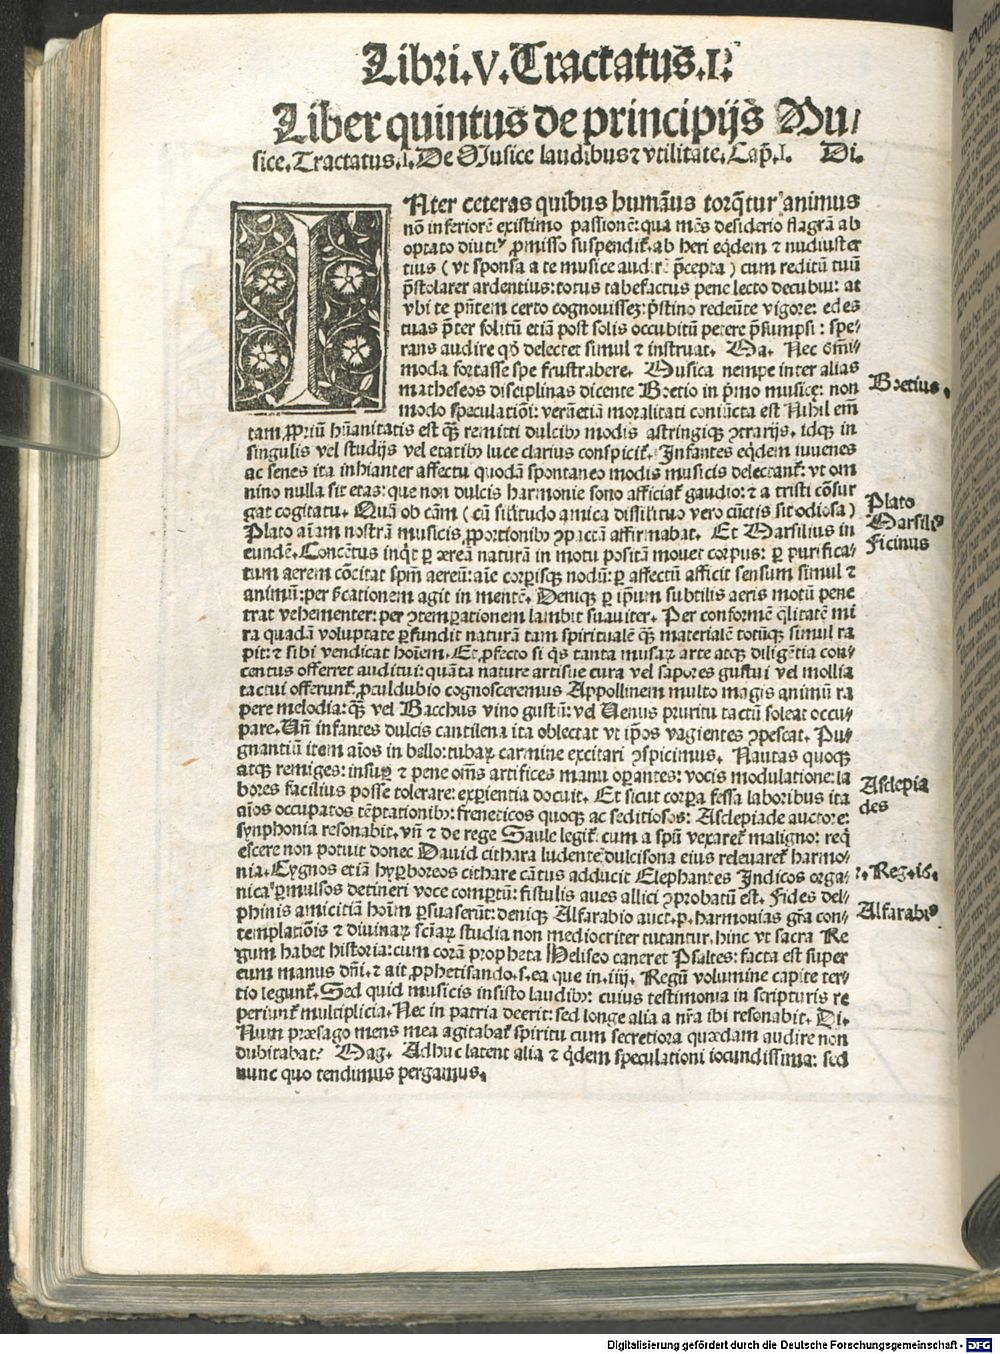 Libri.V.Tractatus.I.
Liber quintus de principijs Mu/
sice. Tractatus.I. De Musice laudibus ⁊ vtilitate. Cap̃.I. Di.
INter ceteras quibus humãus torq̃tur animus
nõ inferiorẽ existimo passionẽ: qua mẽs desiderio flagrãs ab
optato diutiꝰ ꝓmisso suspendit᷑. ab heri eq̃dem ⁊ nudiuster
tius (vt sponsa a te musice audirẽ p̃cepta) cum reditũ tuũ
p̃stolarer ardentius: totus tabefactus pene lecto decubui: at
vbi te p̃ntem certo cognouissez: p̃stino redeũte vigore: edes
tuas p̃ter solitũ etiã post solis occubitũ petere p̃sumpsi: spe/
rans audire qđ delectet simul ⁊ instruat. Ma. Nec õmi/
moda fortasse spe frustrabere. Musica nempe inter alias
matheseos disciplinas dicente Boetio in p̃mo musice: non
modo speculatiõi: verũetiã moralitati coniũcta est Nihil em̃
tam ꝓpriũ hũanitatis est q̃ꝫ remitti dulcibꝫ modis astringiqꝫ ꝯtrarijs. idqꝫ in
singulis vel studijs vel etatibꝫ luce clarius conspicit᷑. Infantes eq̃dem iuuenes
ac senes ita inhianter affectu quodã spontaneo modis musicis delectant᷑: vt om
nino nulla sit etas: que non dulcis harmonie sono afficiat᷑ gaudio: ⁊ a tristi cõsur
gat cogitatu. Quã ob cãm (cũ siĩlitudo amica dissiĩlituo vero cũctis sit odiosa)
Plato aĩam nostrã musicis ꝓportionibꝫ ꝯpactã affirmabat. Et Marsilius in
eundẽ. Concẽtus inq̃t ꝑ aereã naturã in motu positã mouet corpus: ꝑ purifica/
tum aerem cõcitat sp̃m aereũ: aĩe corꝑisqꝫ nodũ: ꝑ affectũ afficit sensum simul ⁊
animũ: per s̃cationem agit in mentẽ. Deniqꝫ ꝑ ip̃um subtilis aeris motũ pene
trat vehementer: per ꝯtemꝑationem lambit suauiter. Per conformẽ q̃litatẽ mi
ra quadã voluptate ꝑfundit naturã tam spiritualẽ q̃ꝫ materialẽ totũqꝫ simul ra
pit: ⁊ sibi vendicat hoĩem. Et ꝓfecto si q̃s tanta musaꝝ arte atqꝫ diligẽtia con/
centus offerret auditui: quãta nature artisue cura vel sapores gustui vel mollia
tactui offerunt᷑. ꝓculdubio cognosceremus Appollinem multo magis animũ ra
pere melodia: q̃ꝫ vel Bacchus vino gustũ: vel Uenus pruritu tactũ soleat occu/
pare. Un̄ infantes dulcis cantilena ita oblectat vt ip̃os vagientes ꝯpescat. Pu/
gnantiũ item aĩos in bello: tubaꝝ carmine excitari ꝯspicimus. Nautas quoqꝫ
atqꝫ remiges: insuꝑ ⁊ pene om̃s artifices manu oꝑantes: vocis modulatione: la
bores facilius posse tolerare: exꝑientia docuit. Et sicut corꝑa fessa laboribus ita
aĩos occupatos tẽptationibꝫ: freneticos quoqꝫ ac seditiosos: Asclepiade auctore:
synphonia resonabit. vñ ⁊ de rege Saule legit᷑: cum a spũ vexaret᷑ maligno: req̃
escere non potuit donec Dauid cithara ludente dulcisona eius releuaret᷑ harmo/
nia. Cygnos etiã hyꝑboreos cithare cãtus adducit Elephantes Indicos orga/
nica ꝑmulsos detineri voce comꝑtũ: fistulis aues allici ꝯprobatũ est. Fides del/
phinis amicitiã hoĩm ꝑsuaserũt: deniqꝫ Alfarabio auct. ꝑ. harmonias gr̃a con/
templatiõis ⁊ diuinaꝝ sciaꝝ studia non mediocriter iuuantur. hinc vt sacra Re
gum habet historia: cum corã propheta Heliseo caneret Psaltes: facta est super
eum manus dñi. ⁊ ait ꝓphetisando. s. ea que in. iiij. Regũ volumine capite ter/
tio legunt᷑. Sed quid musicis insisto laudibꝫ: cuius testimonia in scripturis re
periunt᷑ multiplicia. Nec in patria deerit: sed longe alia a nr̃a ibi resonabit. Di.
Num præsago mens mea agitabat᷑ spiritu cum secretiora quædam audire non
dubitabat? Mag. Adhuc latent alia ⁊ q̃dem speculationi iocundissima: sed
nunc quo tendimus pergamus.
Boetius.
Plato
Marsiliꝰ
Ficinus
Asclepia
des
Reg. 16.
Alfarabiꝰ
Digitalisierung gefördert durch die Deutsche Forschungsgemeinschaft - DFG